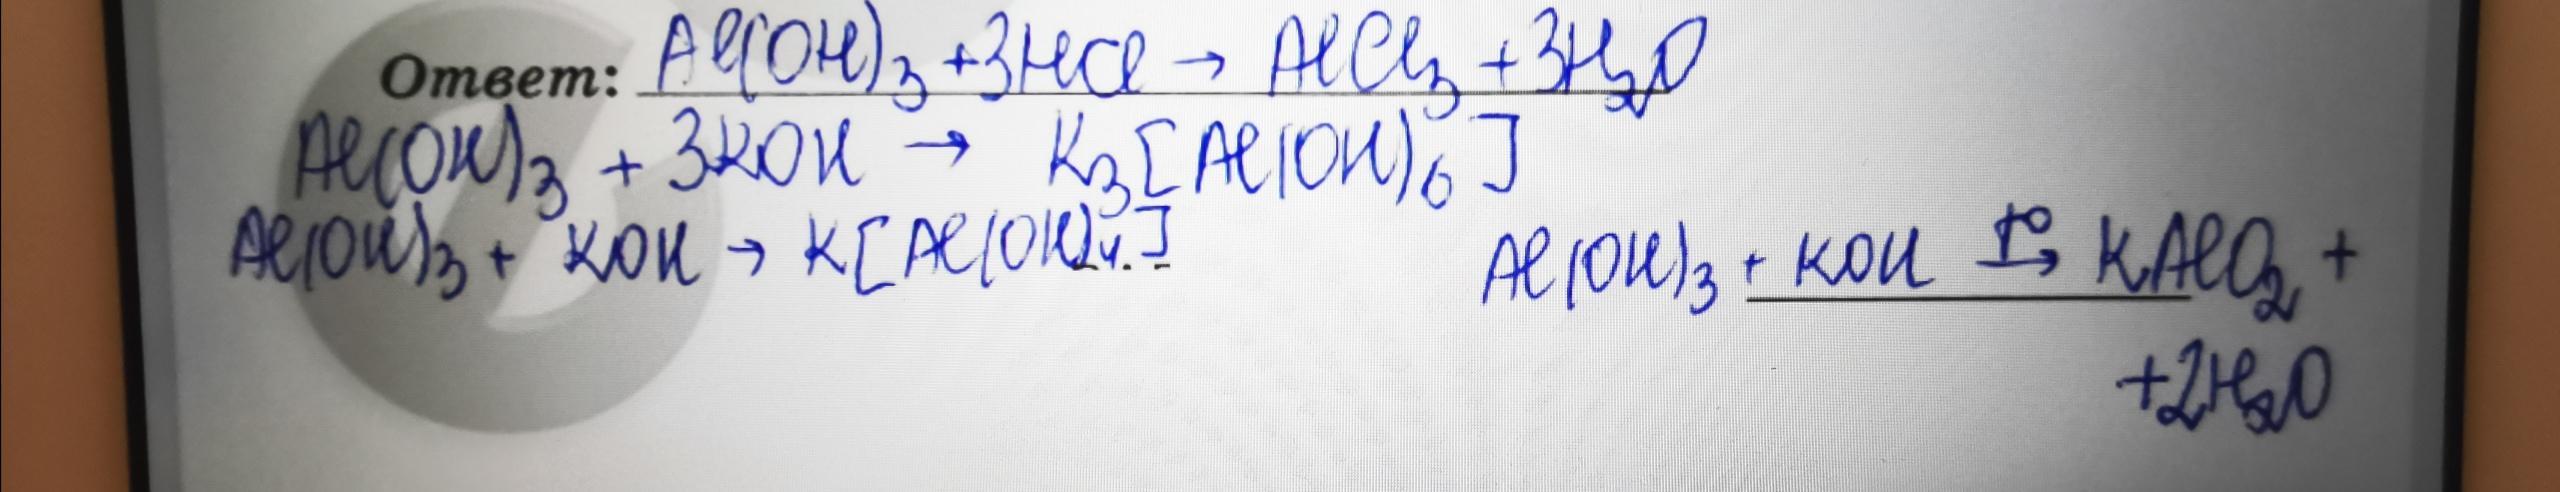 Ответ: Al(OH)₃ + 3HCl → AlCl₃ + 3H₂O
Al(OH)₃ + 3KOH → K₃[Al(OH)₆]
Al(OH)₃ + KOH → K[Al(OH)₄]
Al(OH)₃ + KOH t°→ KAlO₂ +
+2H₂O